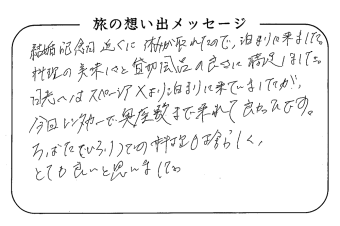 旅の想い出メッセージ
結婚記念日近くに休みが取れたので、泊まりに来ました。
料理の美味しさと貸切風呂の良さに満足しました。
日光へはスペーシアXより泊まりに来ていましたが、
今回レンタカーで奥座敷まで来れて良かったです。
ろばた(いろり)での料理も珍らしく、
とても良いと思いました。